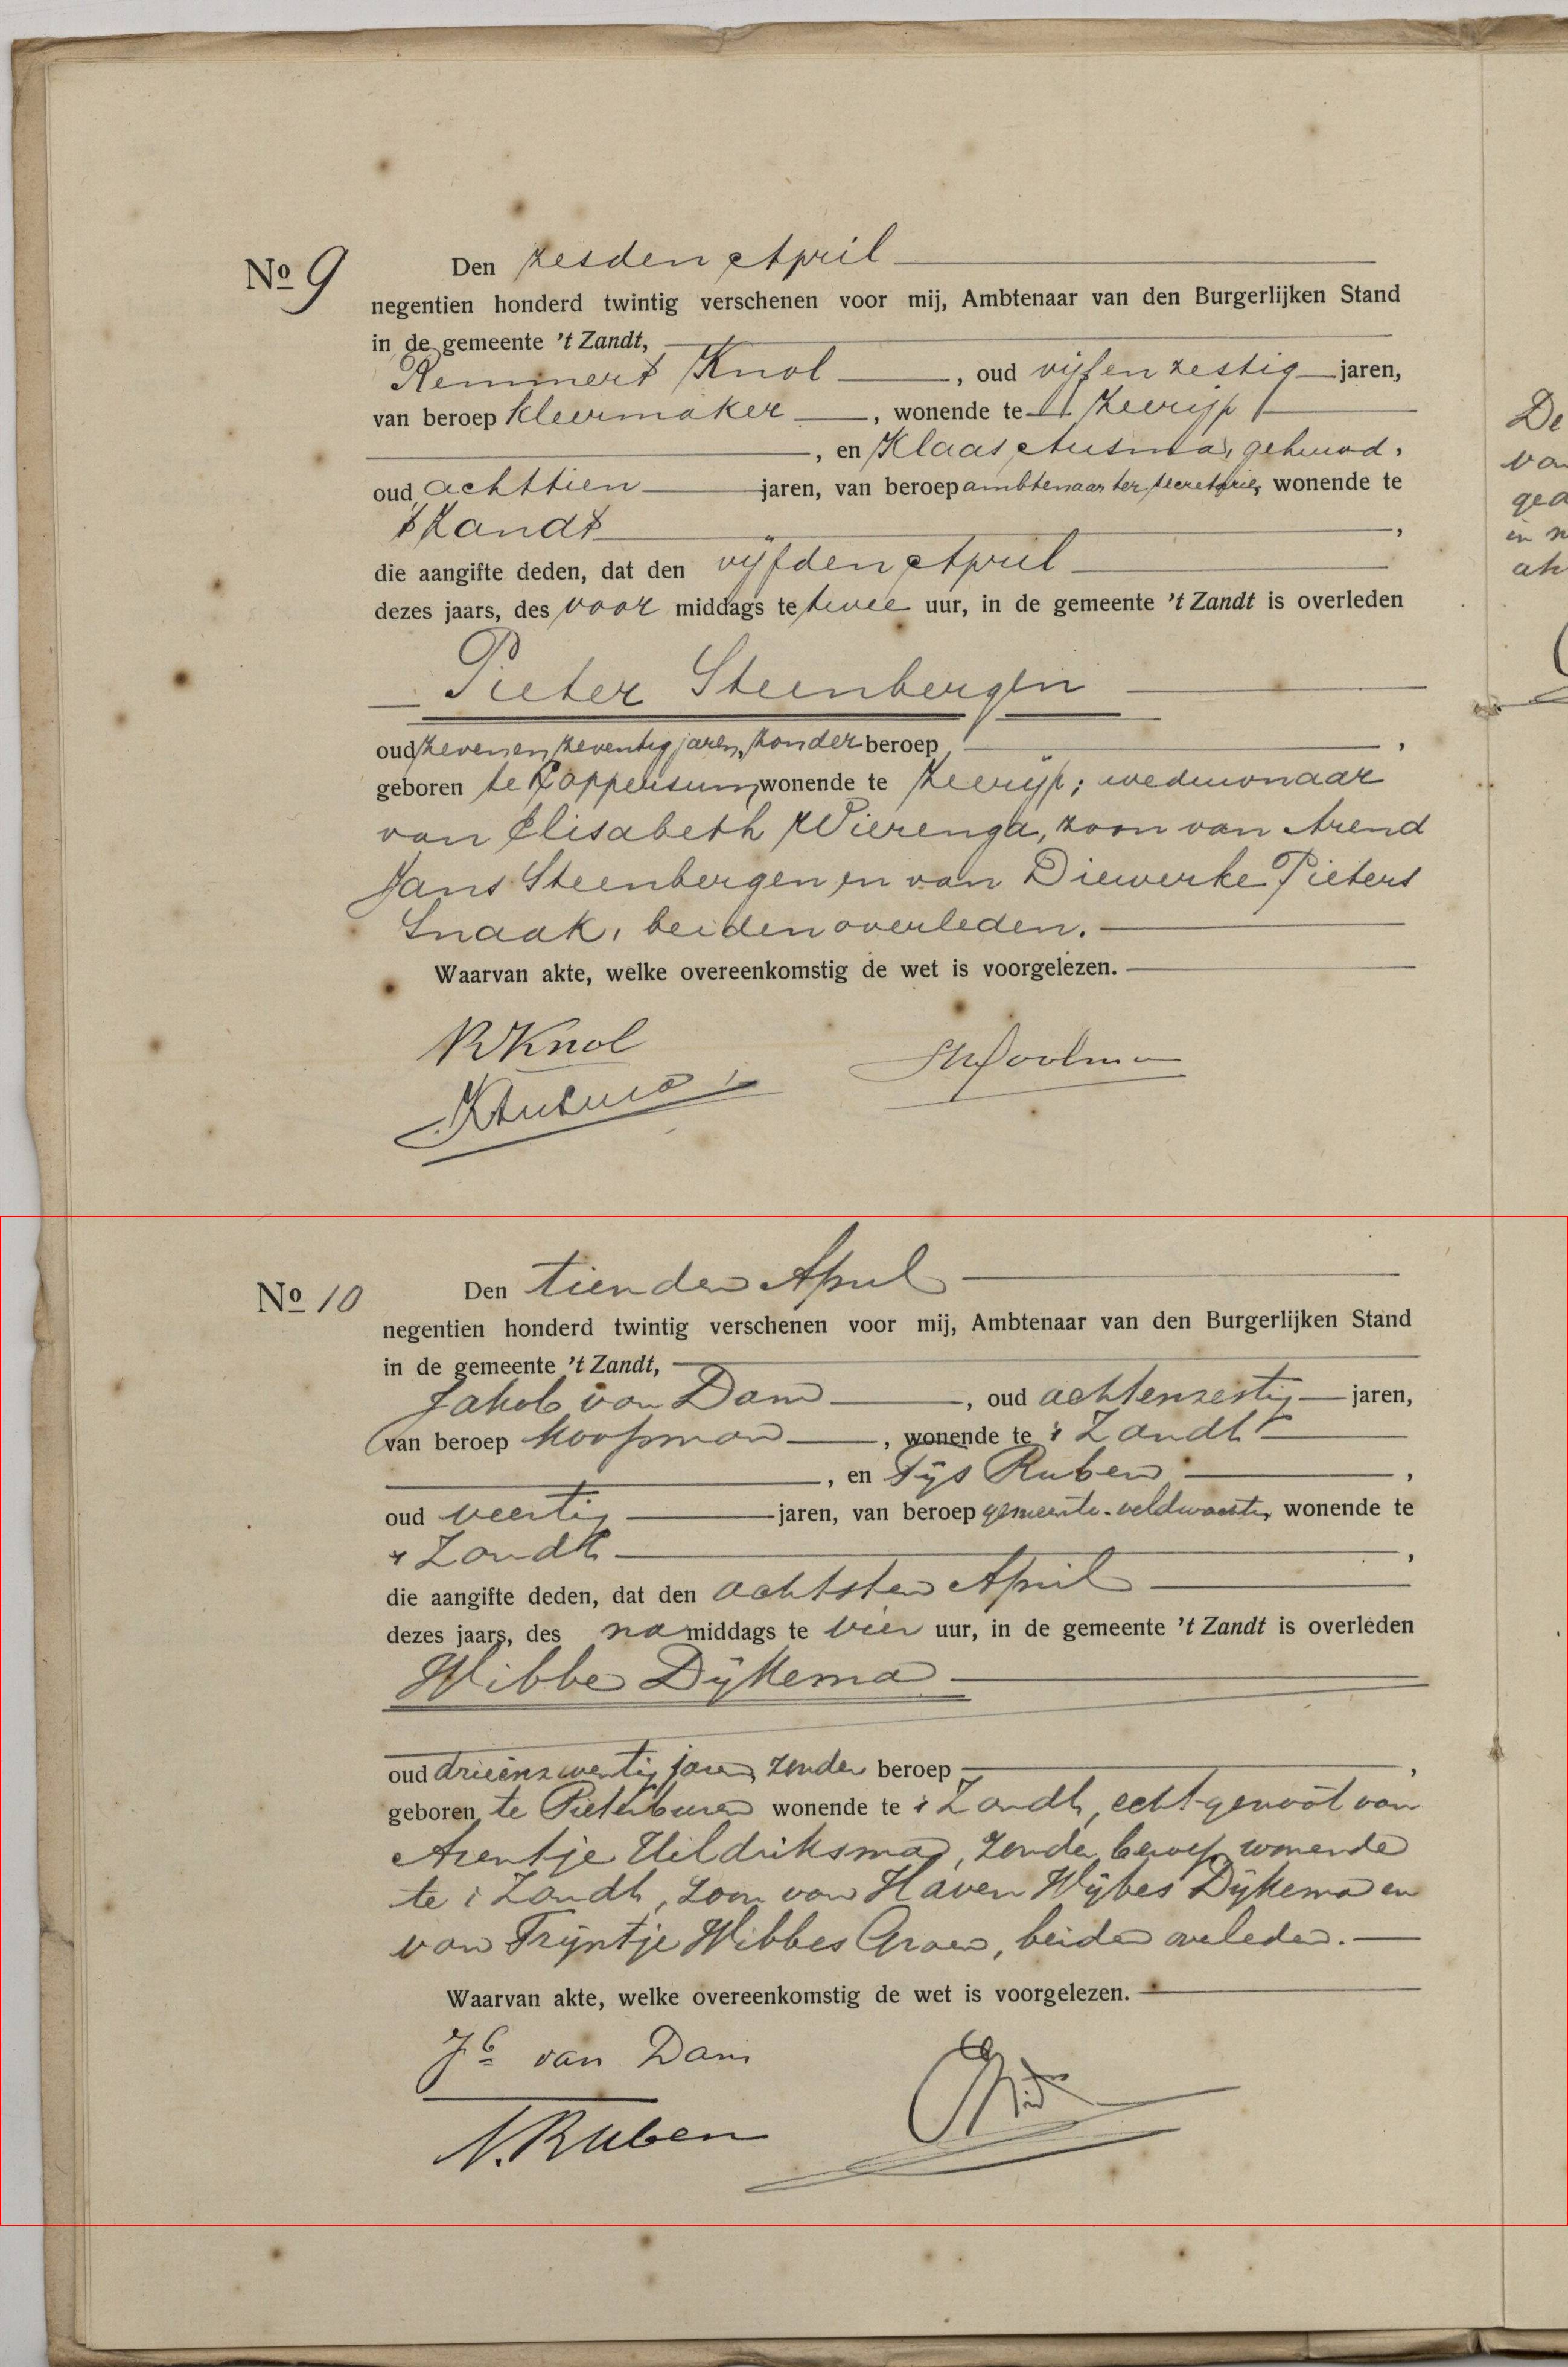 No 9 Den zesden April
negentien honderd twintig verschenen voor mij, Ambtenaar van den Burgerlijken Stand
in de gemeente 't Zandt,
Remmert Knol, oud vijfenzestig jaren,
van beroep kleermaker, wonende te Zeerijp
, en Klaas Ausma, gehuwd,
oud achttien jaren, van beroep ambtenaar ter secretarie, wonende te
't Zandt,
die aangifte deden, dat den vijfden April
dezes jaars, des voor middags te twee uur, in de gemeente 't Zandt is overleden
Pieter Steenbergen
oud zevenenzeventig jaren, zonder beroep,
geboren te Loppersum, wonende te Zeerijp; weduwnaar
van Elisabeth Wierenga, zoon van Arend
Jans Steenbergen en van Diewerke Pieters
Snaak, beiden overleden.
Waarvan akte, welke overeenkomstig de wet is voorgelezen.
R Knol
K Ausma
No 10 Den tienden April
negentien honderd twintig verschenen voor mij, Ambtenaar van den Burgerlijken Stand
in de gemeente 't Zandt,
Jakob van Dam, oud achtenzestig jaren,
van beroep koopman, wonende te 't Zandt
, en Tijs Ruben,
oud veertig jaren, van beroep gemeente-veldwachter, wonende te
't Zandt,
die aangifte deden, dat den achtsten April
dezes jaars, des na middags te vier uur, in de gemeente 't Zandt is overleden
Wibbe Dijkema
oud drieënzwentig jaren, zonder beroep,
geboren te Pieterburen wonende te 't Zandt, echtgenoot van
Arentje Uildriksma, zonder beroep, wonende
te 't Zandt, zoon van Haven Wijbes Dijkema en
van Trijntje Wibbes Groen, beiden overleden.
Waarvan akte, welke overeenkomstig de wet is voorgelezen.
Jb van Dam
Ruben
De
ged